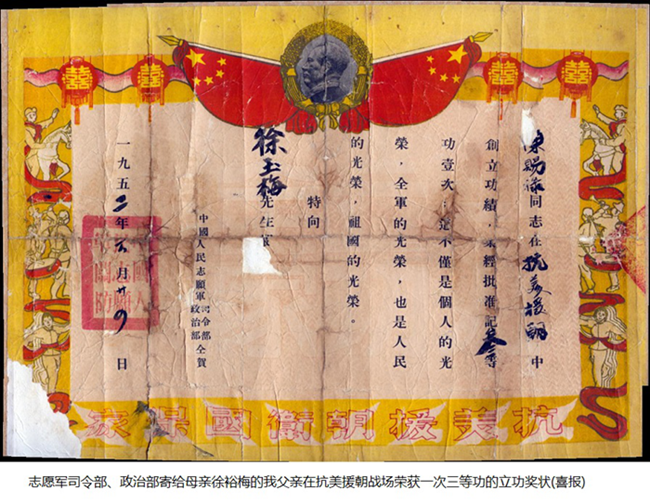 囍
囍
囍
囍
陳賜祿同志在抗美援朝中
創立功績，業經批准記叁等
功壹次，這不僅是個人的光
榮，全軍的光榮，也是人民
的光榮，祖國的光榮。
特向
徐玉梅先生
中國人民志願軍司令部政治部仝賀
一九五二年六月廿四日
抗美援朝衛國保家
志愿军司令部、政治部寄给母亲徐裕梅的我父亲在抗美援朝战场荣获一次三等功的立功奖状(喜报)